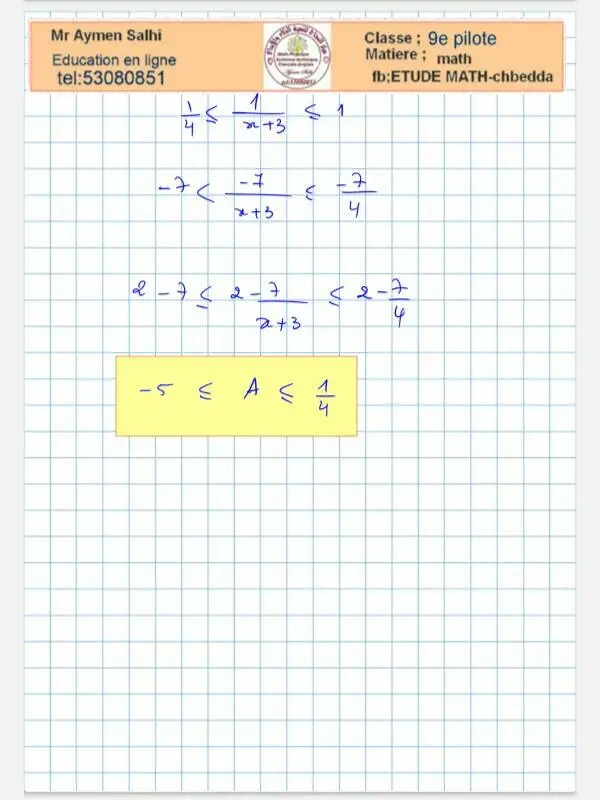 Mr Aymen Salhi
Education en ligne
tel:53080851
Classe ; 9e pilote
Matiere ; math
fb;ETUDE MATH-chbedda
1/4 ≤ 1/(x+3) ≤ 1
-7 < -7/(x+3) ≤ -7/4
2 - 7 ≤ 2 - 7/(x+3) ≤ 2 - 7/4
-5 ≤ A ≤ 1/4